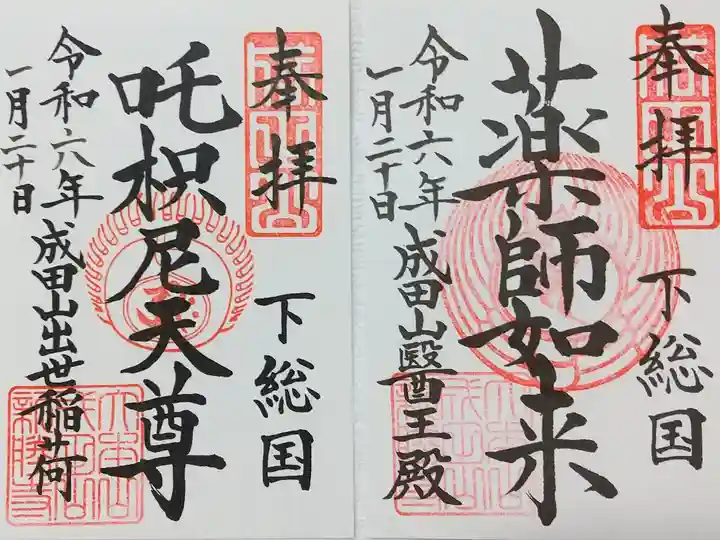 奉拝
下総国
薬師如来
成田山醫王殿
令和六年
一月二十日
奉拝
下総国
吒枳尼天尊
成田山出世稲荷
令和六年
一月二十日